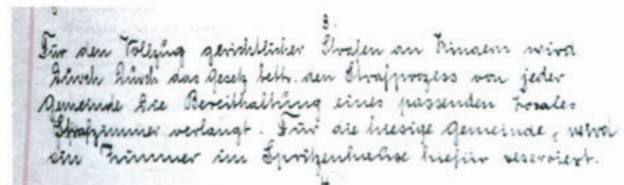 3.
Für den Vollzug gerichtlicher Strafen an Kindern wird
durch durch das Gesetz betr. den Strafprozess von jeder
Gemeinde die Bereithaltung eines passenden Lokales
Strafzimmer verlangt. Für die hiesige Gemeinde, wird
ein Zimmer im Spritzenhause hiefür reserviert.